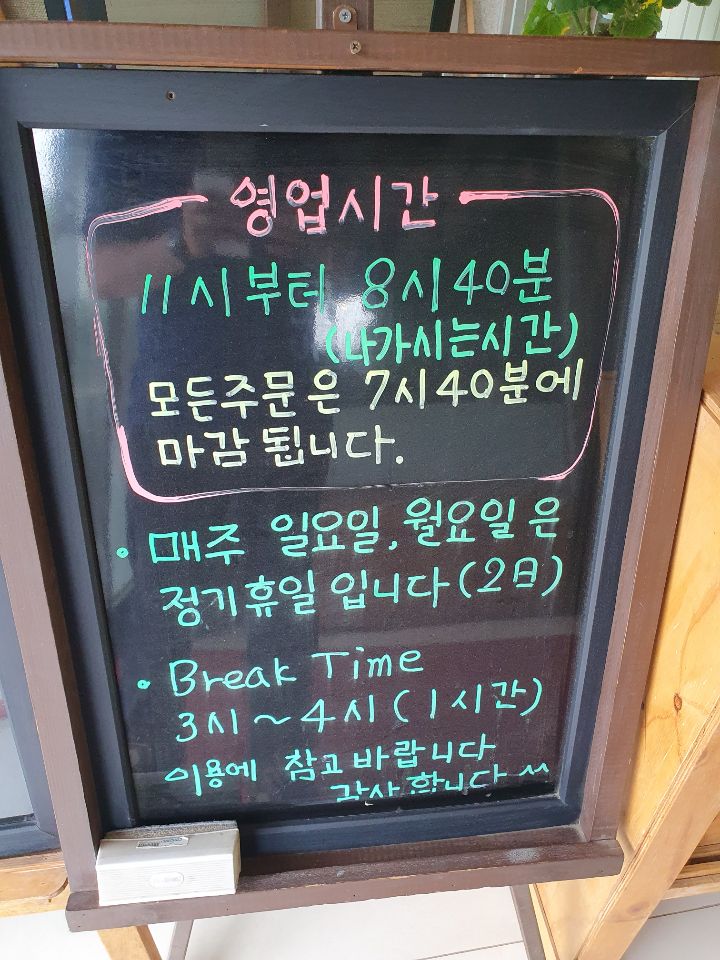 영업시간
11시부터 8시40분
(나가시는시간)
모든주문은 7시40분에
마감 됩니다.
• 매주 일요일, 월요일은
정기휴일 입니다 (2日)
• Break Time
3시~4시 (1시간)
이용에 참고 바랍니다
감사 합니다 ^^